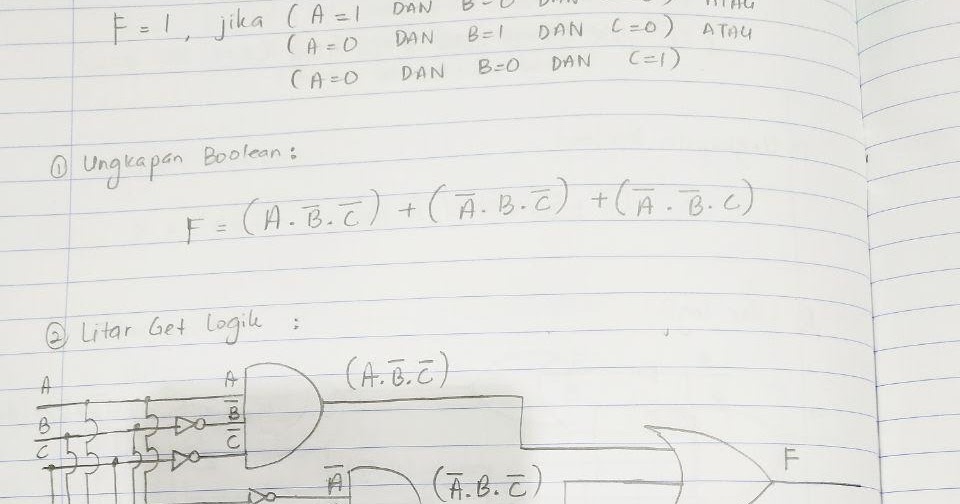 F = 1, jika (A=1 DAN
(A=0 DAN B=1 DAN C=0) ATAU
(A=0 DAN B=0 DAN C=1)
① Ungkapan Boolean:
F = (A.B̅.C̅) + (A̅.B.C̅) + (A̅.B̅.C)
② Litar Get Logik :
A
B
C
A
B̅
C̅
(A.B̅.C̅)
A̅
(A̅.B.C̅)
F